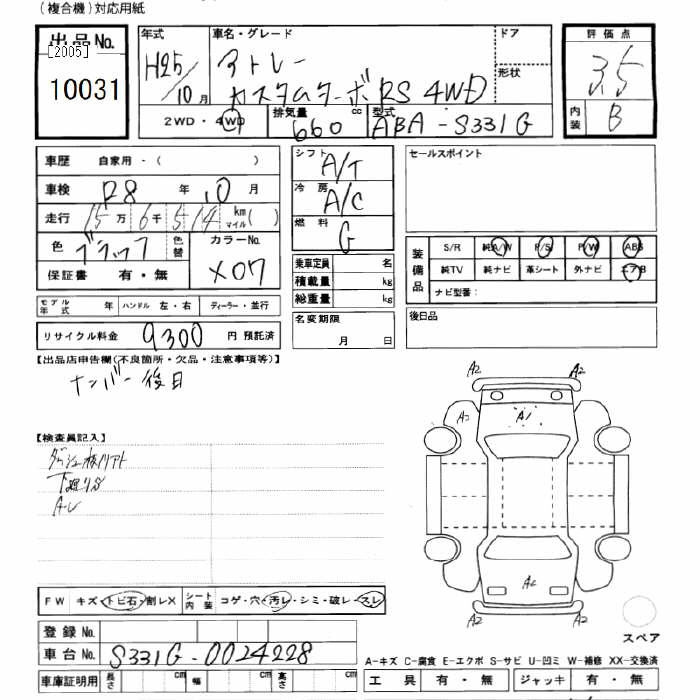 (複合機)対応用紙
出品No.
[2005]
10031
年式
H25/10月
車名・グレード
アトレー
カスタムターボ RS 4WD
ドア
形状
評価点
3.5
内装
B
2WD・4WD
排気量
660 cc
型式
ABA-S331G
車歴 自家用・( )
車検 R8 年 10 月
走行 15万6千514 km マイル( )
色 ブラック 色替
カラーNo.
X07
保証書 有・無
シフト
A/T
冷房
A/C
燃料
G
セールスポイント
装備品
S/R 純A/W P/S P/W ABS
純TV 純ナビ 革シート 外ナビ エアB
ナビ型番:
乗車定員 名
積載量 kg
総重量 kg
モデル年式 年 ハンドル 左・右 ディーラー・並行
名変期限
月 日
後日品
リサイクル料金 9300 円 預託済
【出品店申告欄(不良箇所・欠品・注意事項等)】
ナンバー後日
【検査員記入】
下廻りサ
A2 A2
A2 A1
A2
A2 A2
スペア
FW キズ・トビ石・割レX シート内装 コゲ・穴・汚レ・シミ・破レ・スレ
登録No.
車台No. S331G-0024228
車庫証明用 長さ cm 幅 cm 高さ cm
A-キズ C-腐食 E-エクボ S-サビ U-凹ミ W-補修 XX-交換済
工具 有・無 ジャッキ 有・無